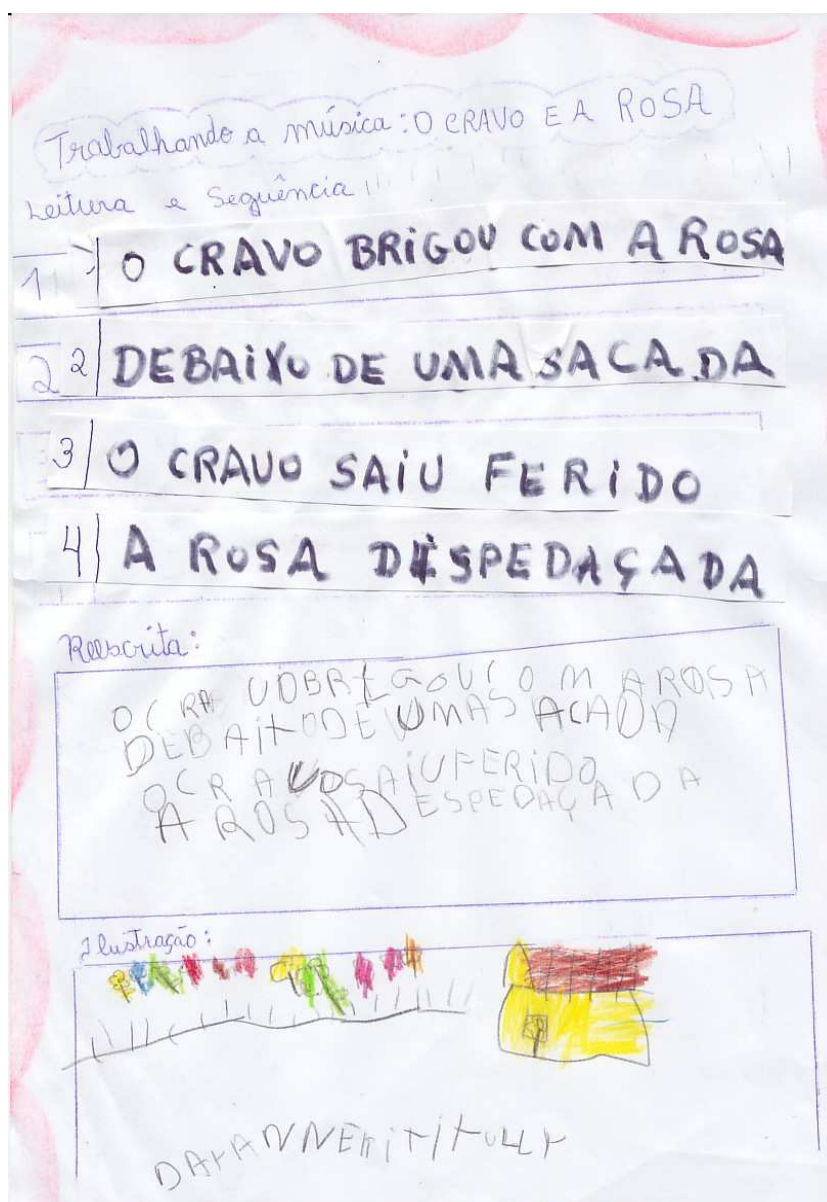 Trabalhando a música: O CRAVO E A ROSA
Leitura e Sequência
1 O CRAVO BRIGOU COM A ROSA
2 2 DEBAIXO DE UMA SACADA
3 O CRAVO SAIU FERIDO
4 A ROSA DESPEDAÇADA
Reescrita:
OCRA VOBRIGOUCOM AROSA
DEBAIXODE UMASACADA
OCRAVOSAIUFERIDO
A ROSAD ESPEDAÇADA
Ilustração: